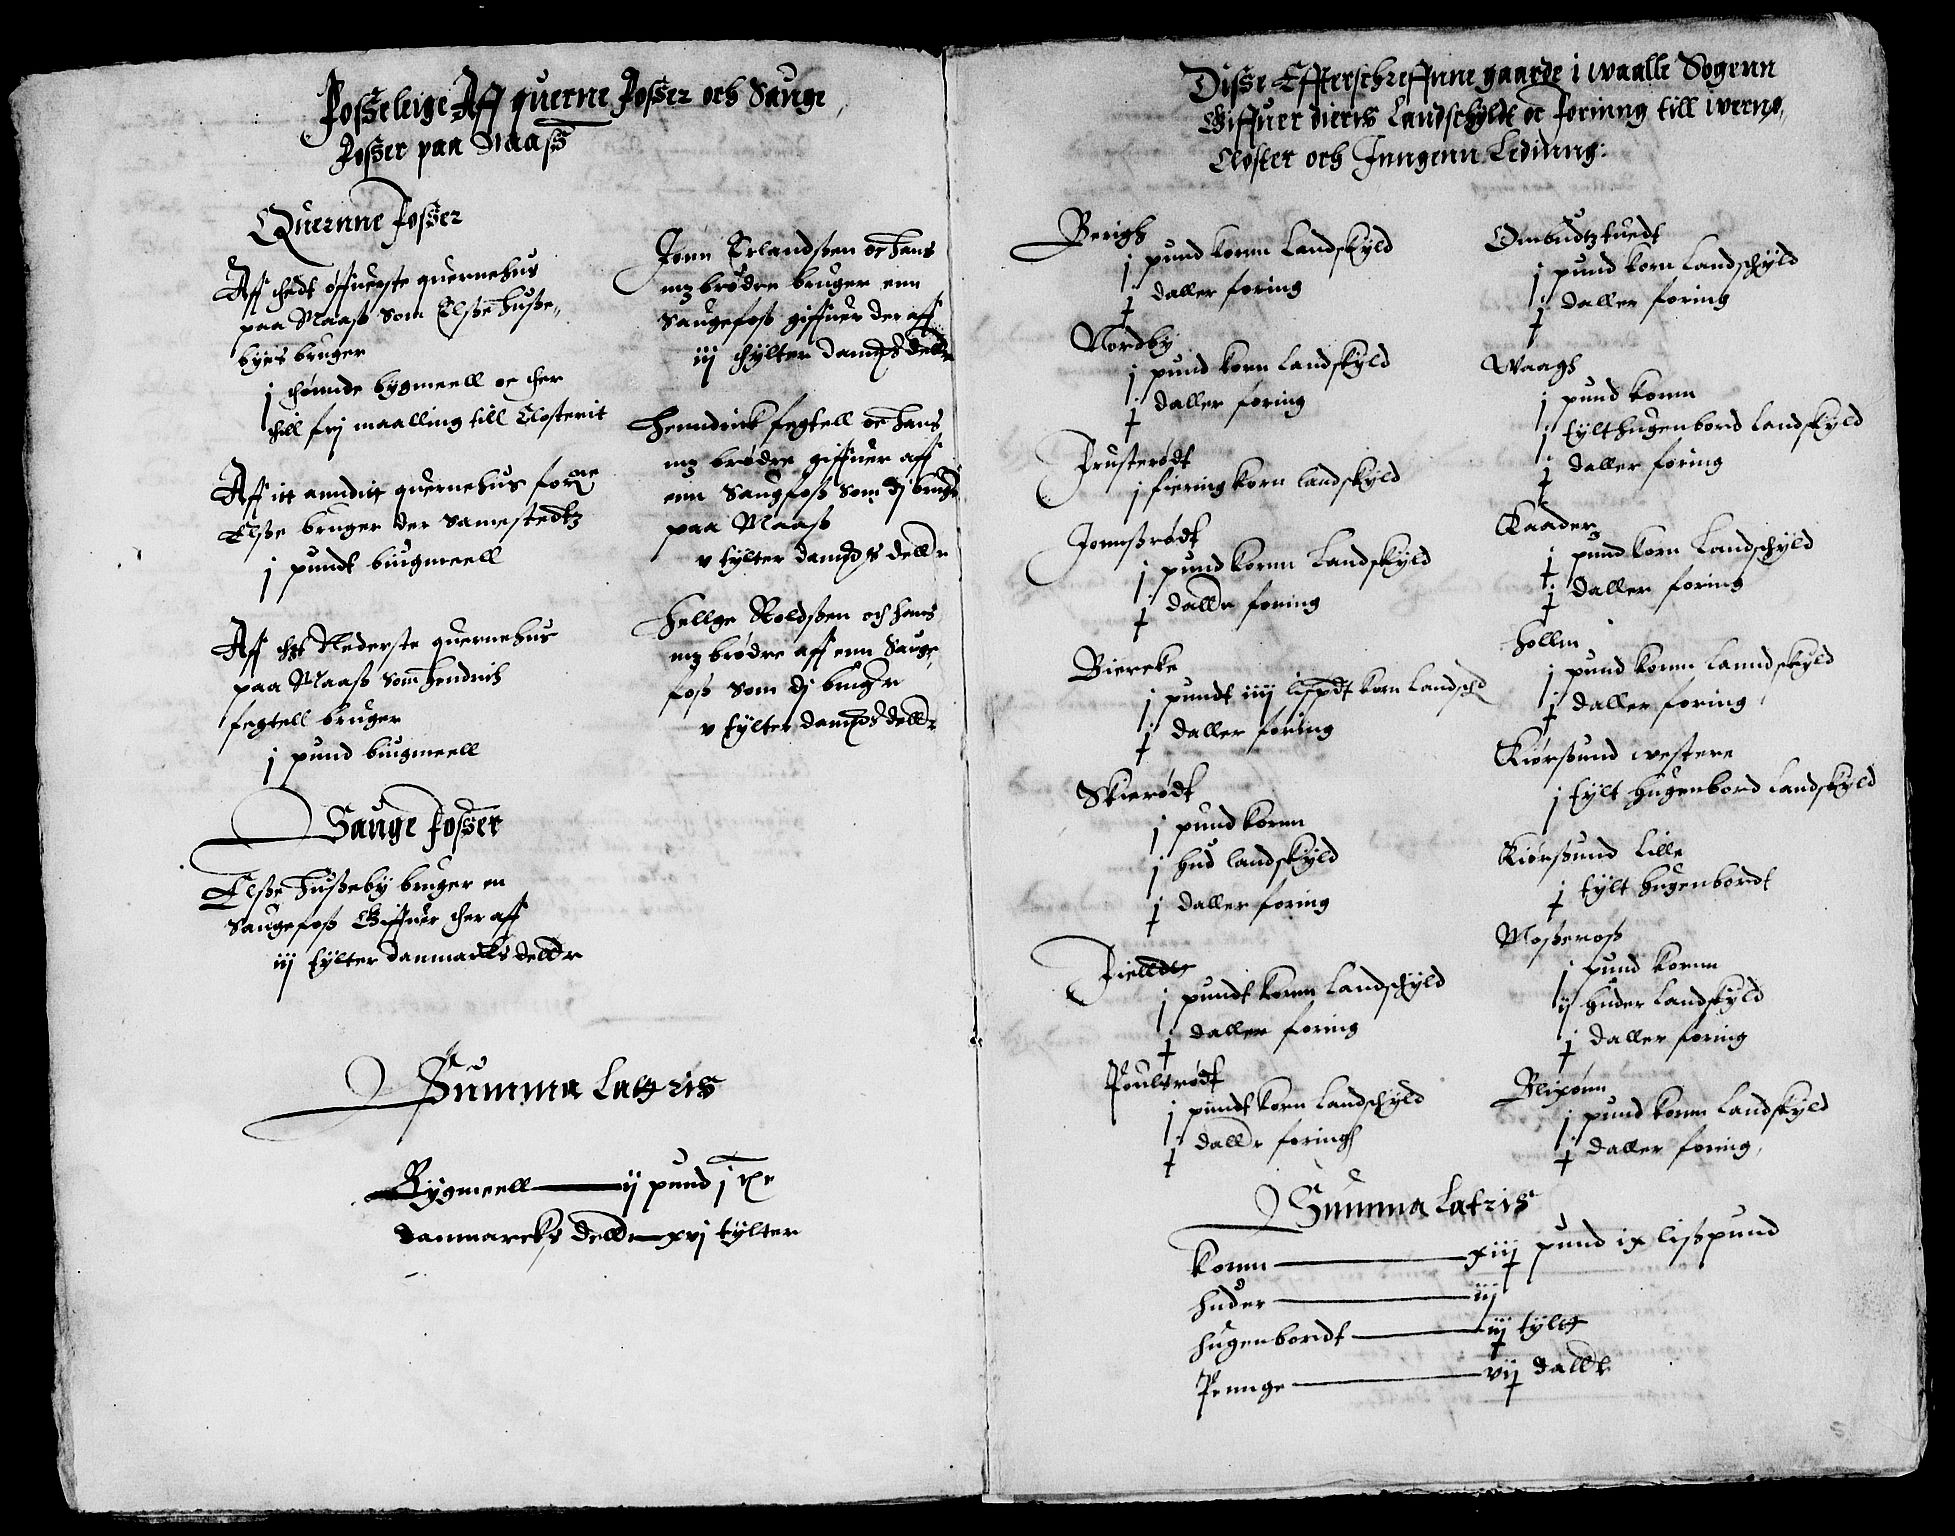 Fosseleige Aff querne Fosser och Sauge
Fosser paa Naass
Quernne Fosser
Aff thedt øffuerste quernehus
paa Naass som Elsse Husse„
byes bruger
j thønnde bygmeell oc ther
thill frj maalling till Closterit
Aff itt anndit quernehus forne
Elsse bruger der samestedtz
j pundt biugmeell
Aff thet Nederste quernehus
paa Naass som Hendrich
fegtell bruger
j pund biugmeell
Sauge Fosser
Elsse Husseby bruger en
Saugefoss Giffuer ther aff
iij tylter danmarcks delldr
Jonn Erlandssen oc hans
mz brødre bruger enn
Saugefoss giffuer der aff
iij thylter danmks delldr
Henndrick fegtell oc hans
mz brødre giffuer aff
enn Saugfoss som dj brugr
paa Naass
v tylter danmks delldr
Hellge Roldssen och hans
mz brødre aff enn Sauge
foss som dj brugr
v tylter danmks delldr
Summa Lateris
Bygmeell — ij pund j tne
danmarcks delldr — xvj tylter
Disse Effterschreffnne gaarde i Waalle Sogenn
Giffuer dieris Landschyldt oc Forinng till Wernø„
Closter och Inngenn Ledinng:
Berigh
j pund kornn Landskyld
j daller foring
Nordby
j pund korn Landskyld
j daller foring
Frusterødt
j fiering korn landskyld
Jonnssrødt
j pund kornn Landskyld
j dalldr foring
Biercke
j pundt iiij lispdt korn Landschd
j daller foring
Skierødt
j pund kornn
j hud landskyld
j daller foring
Fielldtz
j pundt kornn Landschyld
j daller foring
Poulsrødt
j pundt korn Landschyld
j dalldr foringh
Ombudtztuedt
j pund korn Landschyld
j daller foring
Waagh
j pund kornn
j tylt hugenbord Landskyld
j daller foring
Kaader
j pund korn Landschyld
j daller foring
Hollm
j pund kornn Lanndskyld
j daller foring
Kiørssund westere
j tylt hugenbord Landskyld
Kiørssund Lille
j tylt hugenbordt
Mosseross
j pund kornn
ij huder Landskyld
j daller foring
Blixønn
j pund kornn Landskyld
j daller foring
Summa Latris
Kornn — xiij pund ix lisspund
Huder — iij
Hugenbordt — iij tylter
Penge — vij dalldr